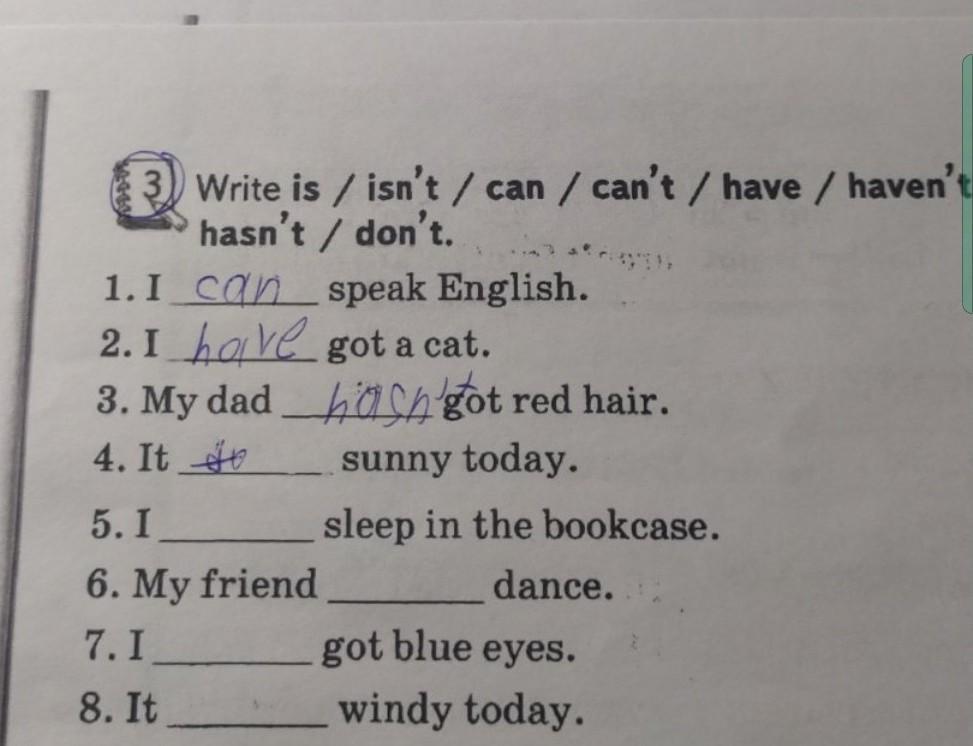 3 Write is / isn't / can / can't / have / haven't
hasn't / don't.
1. I can speak English.
2. I have got a cat.
3. My dad hasn't got red hair.
4. It ______ sunny today.
5. I ______ sleep in the bookcase.
6. My friend ______ dance.
7. I ______ got blue eyes.
8. It ______ windy today.